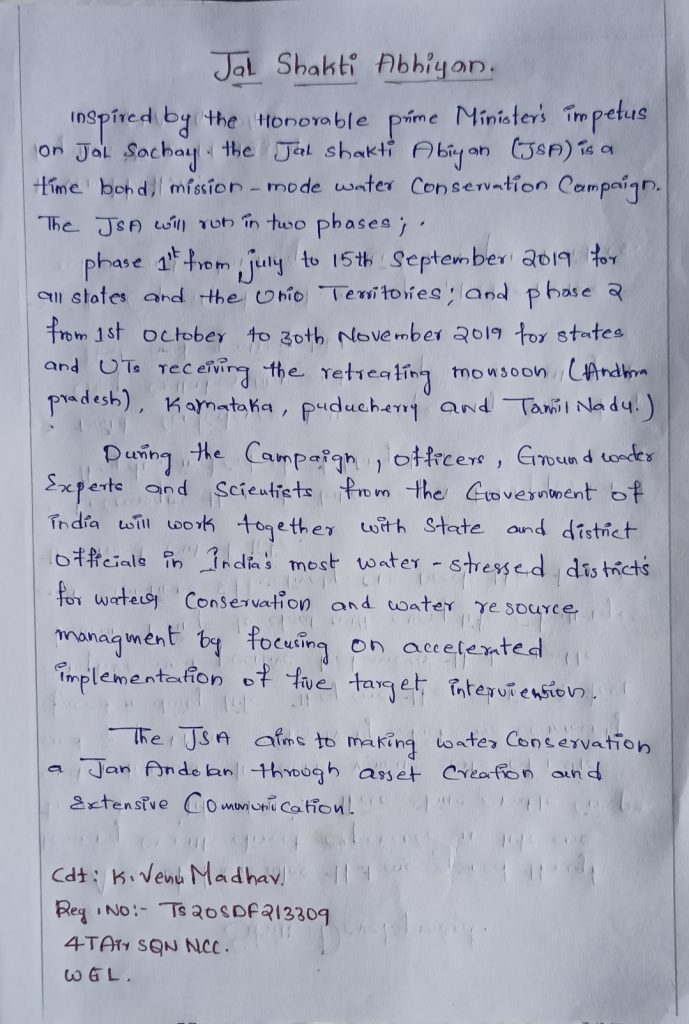 Jal Shakti Abhiyan.
Inspired by the Honorable prime Minister's impetus
on Jal Sachay. the Jal shakti Abiyan (JSA) is a
time bond, mission-mode water Conservation Campaign.
The JSA will run in two phases;.
phase 1st from july to 15th September 2019 for
all states and the Unio Territories; and phase 2
from 1st october to 30th November 2019 for states
and UTs receiving the retreating monsoon (Andhra
pradesh), Karnataka, puducherry and Tamil Nadu.)
During the Campaign, officers, Ground water
Experts and Scientists from the Government of
india will work together with State and district
officials in India's most water-stressed districts
for water Conservation and water resource
managment by focusing on accelerated
implementation of five target interviension.
The JSA aims to making water Conservation
a Jan Andolan through asset Creation and
Extensive Communication.
Cdt: K. Venu Madhav.
Reg. NO:- TS20SDF213309
4 T Air SQN NCC.
WGL.